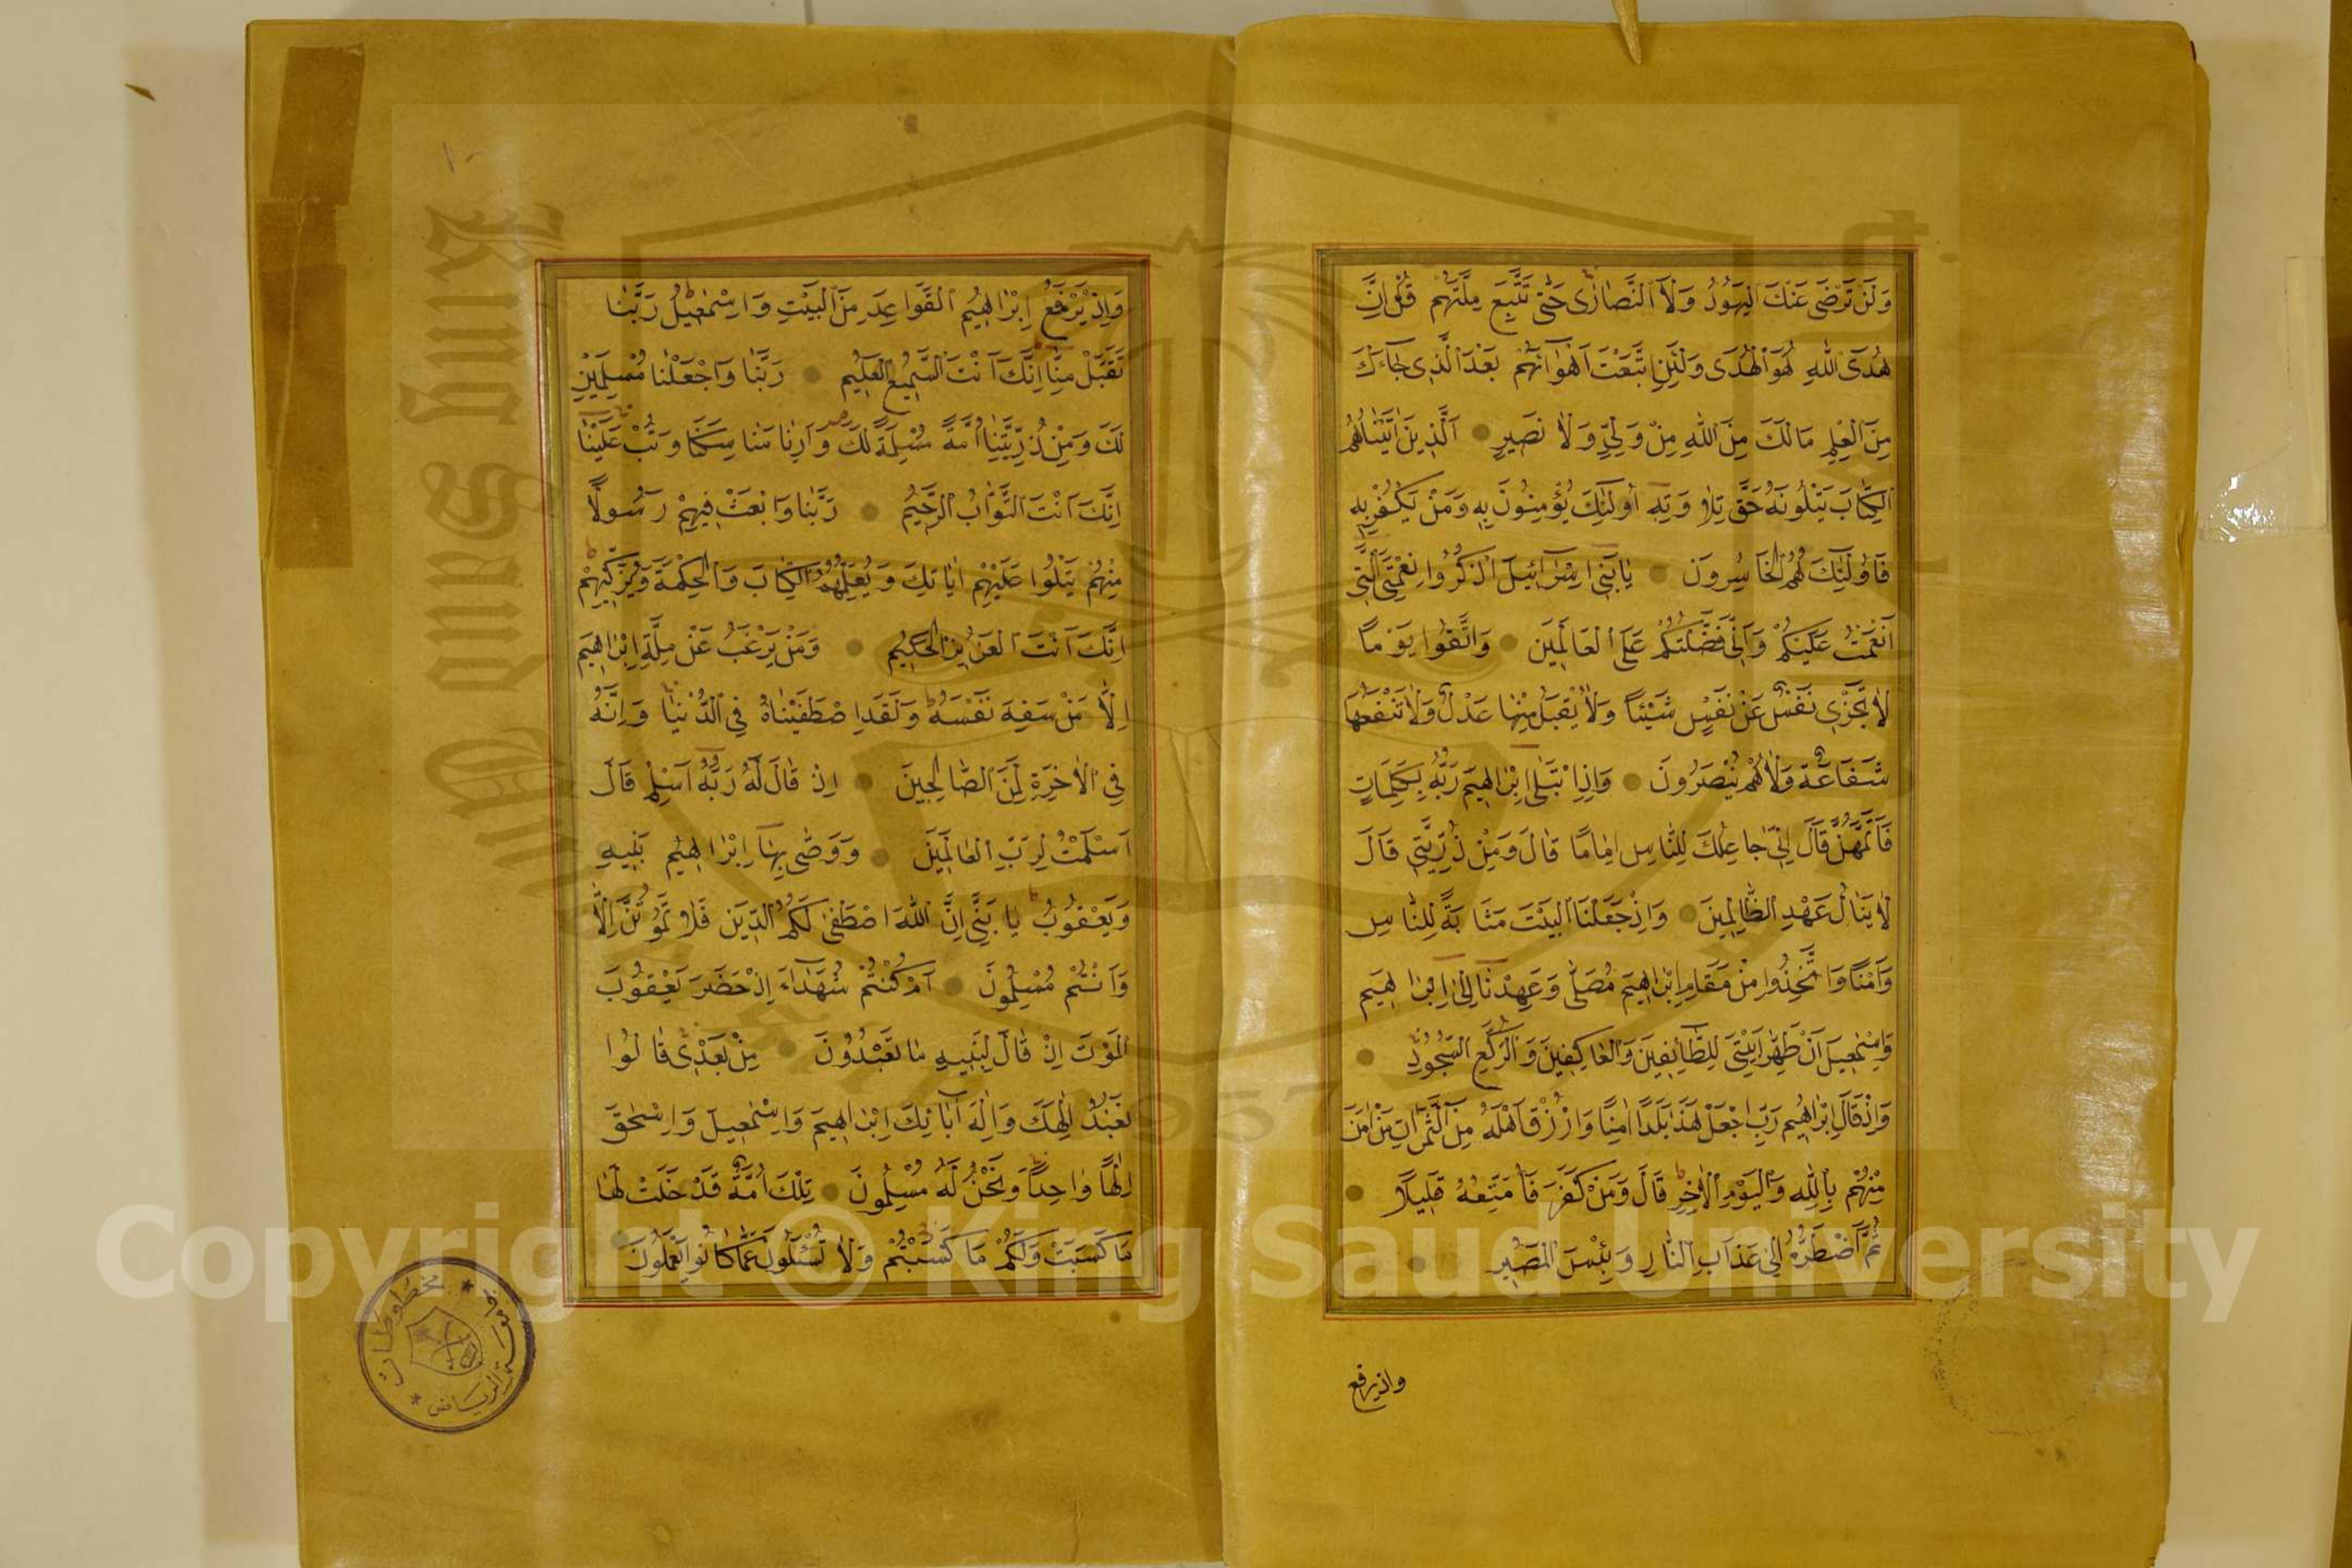 وَلَنْ تَرْضٰى عَنْكَ الْيَهُودُ وَلَا النَّصَارٰى حَتّٰى تَتَّبِعَ مِلَّتَهُمْ قُلْ اِنَّ
هُدَى اللّٰهِ هُوَ الْهُدٰى وَلَئِنِ اتَّبَعْتَ اَهْوَآءَهُمْ بَعْدَ الَّذِى جَآءَكَ
مِنَ الْعِلْمِ مَا لَكَ مِنَ اللّٰهِ مِنْ وَلِيٍّ وَلَا نَصِيرٍ اَلَّذِينَ اٰتَيْنَاهُمُ
الْكِتَابَ يَتْلُونَهُ حَقَّ تِلَاوَتِهِ اُولٰئِكَ يُؤْمِنُونَ بِهِ وَمَنْ يَكْفُرْ بِهِ
فَاُولٰئِكَ هُمُ الْخَاسِرُونَ يَا بَنِى اِسْرَآئِيلَ اذْكُرُوا نِعْمَتِىَ الَّتِى
اَنْعَمْتُ عَلَيْكُمْ وَاَنِّى فَضَّلْتُكُمْ عَلَى الْعَالَمِينَ وَاتَّقُوا يَوْمًا
لَا تَجْزِى نَفْسٌ عَنْ نَفْسٍ شَيْئًا وَلَا يُقْبَلُ مِنْهَا عَدْلٌ وَلَا تَنْفَعُهَا
شَفَاعَةٌ وَلَا هُمْ يُنْصَرُونَ وَاِذِ ابْتَلٰى اِبْرٰاهِيمَ رَبُّهُ بِكَلِمَاتٍ
فَاَتَمَّهُنَّ قَالَ اِنِّى جَاعِلُكَ لِلنَّاسِ اِمَامًا قَالَ وَمِنْ ذُرِّيَّتِى قَالَ
لَا يَنَالُ عَهْدِى الظَّالِمِينَ وَاِذْ جَعَلْنَا الْبَيْتَ مَثَابَةً لِلنَّاسِ
وَاَمْنًا وَاتَّخِذُوا مِنْ مَقَامِ اِبْرٰاهِيمَ مُصَلًّى وَعَهِدْنَا اِلٰى اِبْرٰاهِيمَ
وَاِسْمٰعِيلَ اَنْ طَهِّرَا بَيْتِىَ لِلطَّآئِفِينَ وَالْعَاكِفِينَ وَالرُّكَّعِ السُّجُودِ
وَاِذْ قَالَ اِبْرٰاهِيمُ رَبِّ اجْعَلْ هٰذَا بَلَدًا اٰمِنًا وَارْزُقْ اَهْلَهُ مِنَ الثَّمَرَاتِ مَنْ اٰمَنَ
مِنْهُمْ بِاللّٰهِ وَالْيَوْمِ الْاٰخِرِ قَالَ وَمَنْ كَفَرَ فَاُمَتِّعُهُ قَلِيلًا
ثُمَّ اَضْطَرُّهُ اِلٰى عَذَابِ النَّارِ وَبِئْسَ الْمَصِيرُ
واذ يرفع
وَاِذْ يَرْفَعُ اِبْرٰاهِيمُ الْقَوَاعِدَ مِنَ الْبَيْتِ وَاِسْمٰعِيلُ رَبَّنَا
تَقَبَّلْ مِنَّا اِنَّكَ اَنْتَ السَّمِيعُ الْعَلِيمُ رَبَّنَا وَاجْعَلْنَا مُسْلِمَيْنِ
لَكَ وَمِنْ ذُرِّيَّتِنَا اُمَّةً مُسْلِمَةً لَكَ وَاَرِنَا مَنَاسِكَنَا وَتُبْ عَلَيْنَا
اِنَّكَ اَنْتَ التَّوَّابُ الرَّحِيمُ رَبَّنَا وَابْعَثْ فِيهِمْ رَسُولًا
مِنْهُمْ يَتْلُوا عَلَيْهِمْ اٰيَاتِكَ وَيُعَلِّمُهُمُ الْكِتَابَ وَالْحِكْمَةَ وَيُزَكِّيهِمْ
اِنَّكَ اَنْتَ الْعَزِيزُ الْحَكِيمُ وَمَنْ يَرْغَبُ عَنْ مِلَّةِ اِبْرٰاهِيمَ
اِلَّا مَنْ سَفِهَ نَفْسَهُ وَلَقَدِ اصْطَفَيْنَاهُ فِى الدُّنْيَا وَاِنَّهُ
فِى الْاٰخِرَةِ لَمِنَ الصَّالِحِينَ اِذْ قَالَ لَهُ رَبُّهُ اَسْلِمْ قَالَ
اَسْلَمْتُ لِرَبِّ الْعَالَمِينَ وَوَصّٰى بِهَا اِبْرٰاهِيمُ بَنِيهِ
وَيَعْقُوبُ يَا بَنِىَّ اِنَّ اللّٰهَ اصْطَفٰى لَكُمُ الدِّينَ فَلَا تَمُوتُنَّ اِلَّا
وَاَنْتُمْ مُسْلِمُونَ اَمْ كُنْتُمْ شُهَدَآءَ اِذْ حَضَرَ يَعْقُوبَ
الْمَوْتُ اِذْ قَالَ لِبَنِيهِ مَا تَعْبُدُونَ مِنْ بَعْدِى قَالُوا
نَعْبُدُ اِلٰهَكَ وَاِلٰهَ اٰبَائِكَ اِبْرٰاهِيمَ وَاِسْمٰعِيلَ وَاِسْحٰقَ
اِلٰهًا وَاحِدًا وَنَحْنُ لَهُ مُسْلِمُونَ تِلْكَ اُمَّةٌ قَدْ خَلَتْ لَهَا
مَا كَسَبَتْ وَلَكُمْ مَا كَسَبْتُمْ وَلَا تُسْئَلُونَ عَمَّا كَانُوا يَعْمَلُونَ
جامعة الرياض * مخطوطات *
King Saud University
1957
Copyright © King Saud University